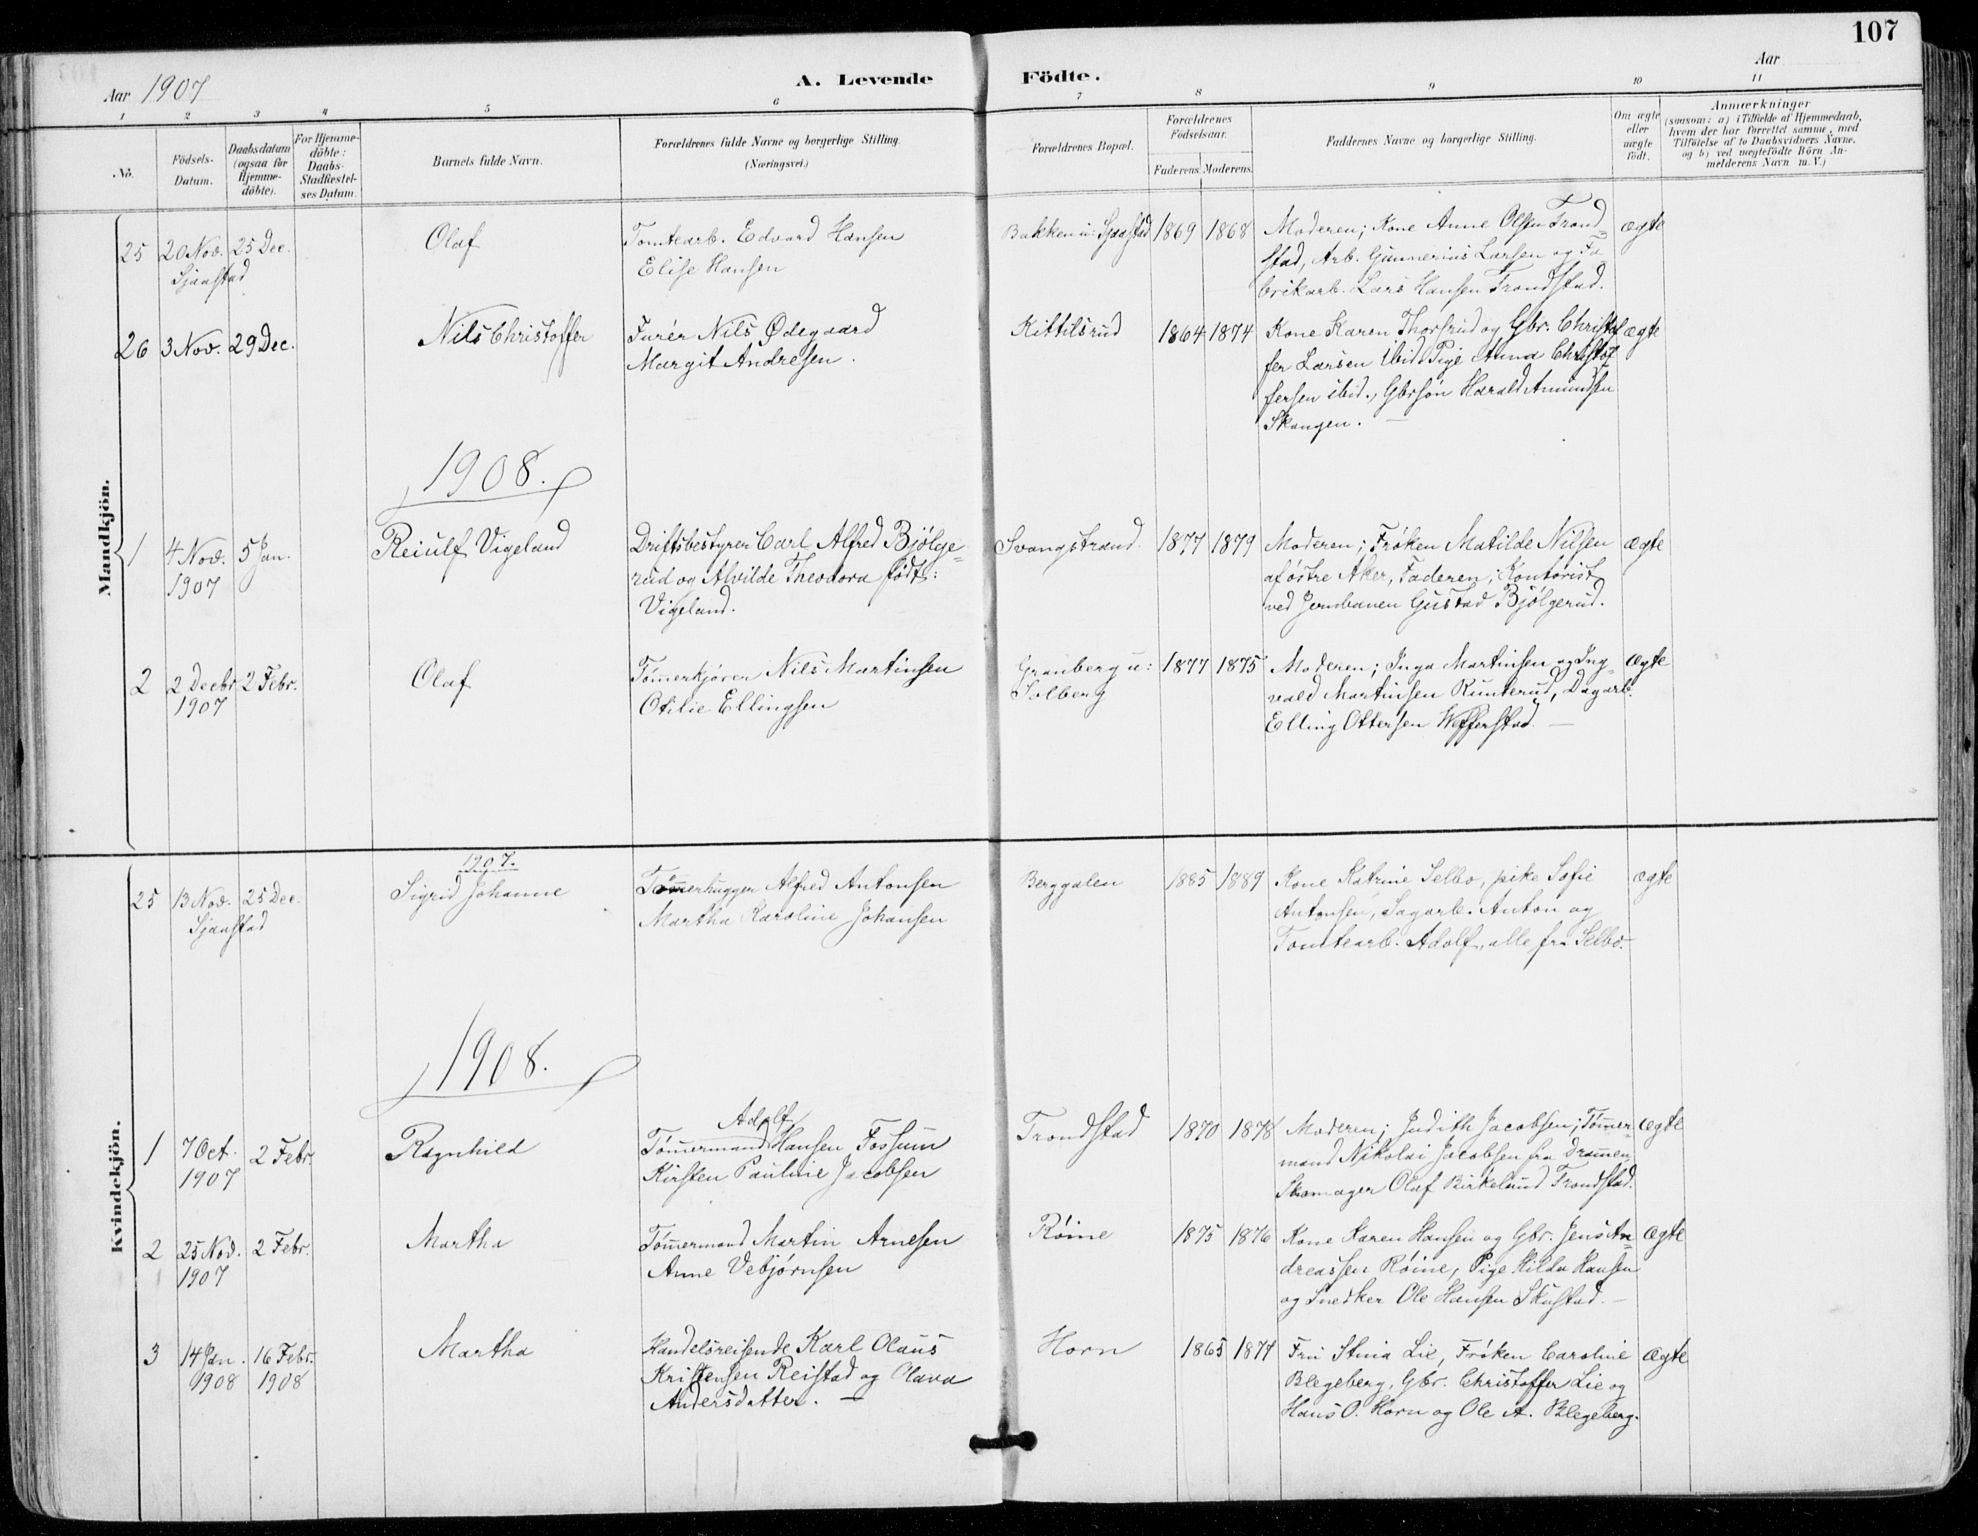 107
Aar 1907
A. Levende Födte.
Aar
1 2 3 4 5 6 7 8 9 10 11
No.
Födsels-Datum.
Daabsdatum (ogsaa for Hjemme-döbte).
For Hjemme-döbte: Daabs-Stadfæstel-ses Datum.
Barnets fulde Navn.
Forældrenes fulde Navne og borgerlige Stilling.
(Næringsvei.)
Forældrenes Bopæl.
Forældrenes Födselsaar.
Faderens. Moderens.
Faddernes Navne og borgerlige Stilling.
Om ægte eller uægte födt.
Anmærkninger
(saasom: a) i Tilfælde af Hjemmedaab,
hvem der har forrettet samme, med
Tilföielse af to Daabsvidners Navne,
og b) ved uægtefödte Börn An-
melderens Navn m. V.)
Mandkjön.
25 20 Nov. 25 Dec. Olaf Tomtearb. Edvard Hansen Bakken u: Sjaastad 1869 1868 Moderen; Kone Anne Olsen Trond- ægte
Sjaastad Elise Hansen stad, Arb. Gunnerius Larsen og Fa
brikarb. Lars Hansen Trondstad.
26 3 Nov. 29 Dec. Nils Christoffer Furér Nils Ødegaard Kittilsrud 1864 1874 Kone Karen Thorsrud og Gbr. Christof ægte
Margit Andresen. fer Larsen ibid. Pige Anna Christof
fersen ibid., Gbrsön Harald Amundsen
Skangen. —
1908.
1 4 Nov. 5 Jan. Reiulf Vigeland Driftsbestyrer Carl Alfred Bjölge- Svangstrand 1877 1879 Moderen; Frøken Matilde Nilsen ægte
1907 rud og Alvilde Theodora født: af östre Aker, Faderen; Kontorist
Vigeland. ved Jernbanen Gustad Bjölgerud.
2 2 Decbr 2 Febr. Olaf Tömerkjörer Nils Martinsen Granberg u: 1877 1875 Moderen; Inga Martinsen og Ing- ægte
1907 Otilie Ellingsen Solberg vald Martinsen Runterud, Dagarb.
Elling Ottersen Wefferstad. —
Kvindekjön.
1907.
25 13 Nov. 25 Dec. Sigrid Johanne Tömerhugger Alfred Antonsen Berggalen 1885 1889 Kone Katrine Selbo, pike Sofie ægte
Sjaastad Martha Karoline Johansen Antonsen, Sagarb. Anton og
Tomtearb. Adolf, alle fra Selbo.
1908.
Adolf
1 7 Oct. 2 Febr. Ragnhild Tömermand Hansen Fossum Trondstad 1870 1878 Moderen; Judith Jacobsen; Tömer- ægte
1907 Kirsten Pauline Jacobsen mand Nikolai Jacobsen fra Dramen,
Skomager Olaf Birkelund Trondstad.
2 25 Nov. 2 Febr. Martha Tömermand Martin Arnesen Röine 1875 1876 Kone Karen Hansen og Gbr. Jens An- ægte
1907 Anne Vebjørnsen dreassen Röine, Pige Hilda Hansen
og Snedker Ole Hansen Skustad. —
3 14 Jan. 16 Febr. Martha Handelsreisende Karl Olaus Horn 1865 1877 Fru Stina Lie, Frøken Caroline ægte
1908 1908 Kristensen Reistad og Olava Blegeberg, Gbr. Christoffer Lie og
Andersdatter. — Hans O. Horn og Ole A. Blegeberg.